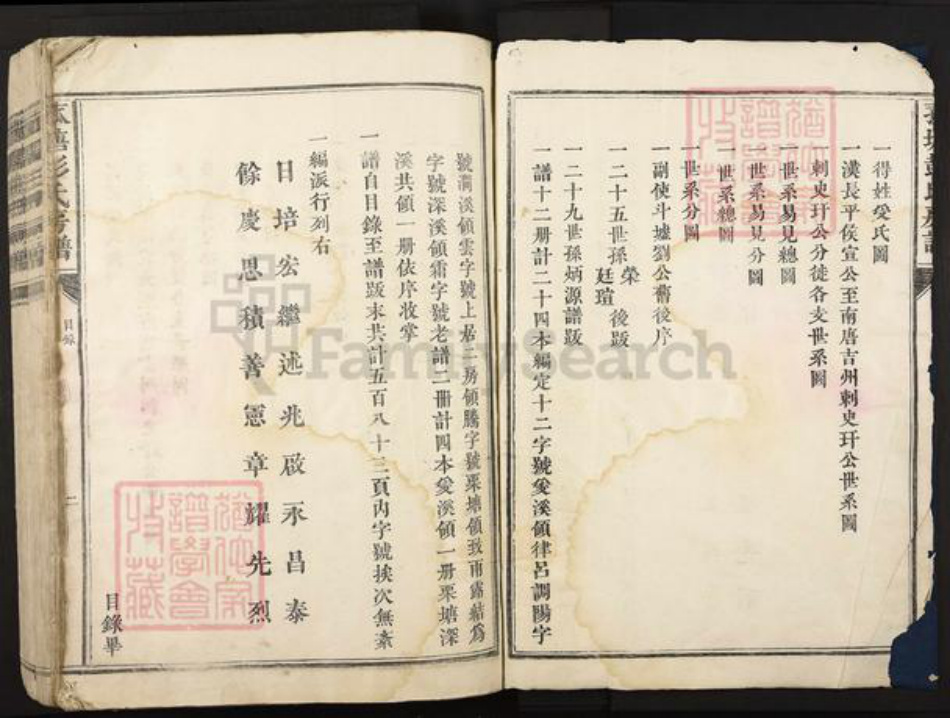 一得姓受氏圖
一漢長平侯宣公至南唐吉州刺史玕公世系圖
刺史玕公分徙各支世系圖
一世系易見總圖
世系易見分圖
一世系總圖
一世系分圖
一副使斗墟劉公舊後序
一二十五世孫榮廷瑄後跋
一二十九世孫炳源譜跋
一譜十二册計二十四本編定十二字號爰溪領律呂調陽字
號澗溪領雲字號上居三房領騰字號栗塘領致雨露結爲
字號深溪領霜字號老譜二冊計四本爰溪領一册栗塘深
溪共領一册依序收掌
一譜自目錄至譜跋末共計五百八十三頁內字號挨次無紊
一編派行列右
日培宏繼述兆啟永昌泰
餘慶思積善憲章耀先烈
目錄畢
彭氏房譜
目錄
二
FamilySearch